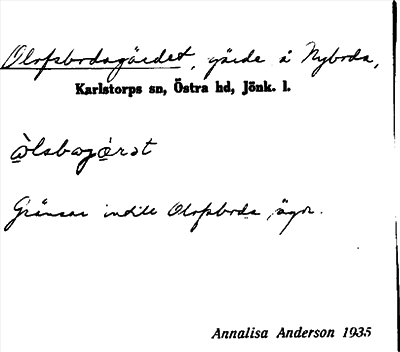 Olofsbodagärdet, gärde å Nyboda,
Karlstorps sn, Östra hd, Jönk. l.
Gränsar intill Olofsboda ägor.
Annalisa Anderson 1935